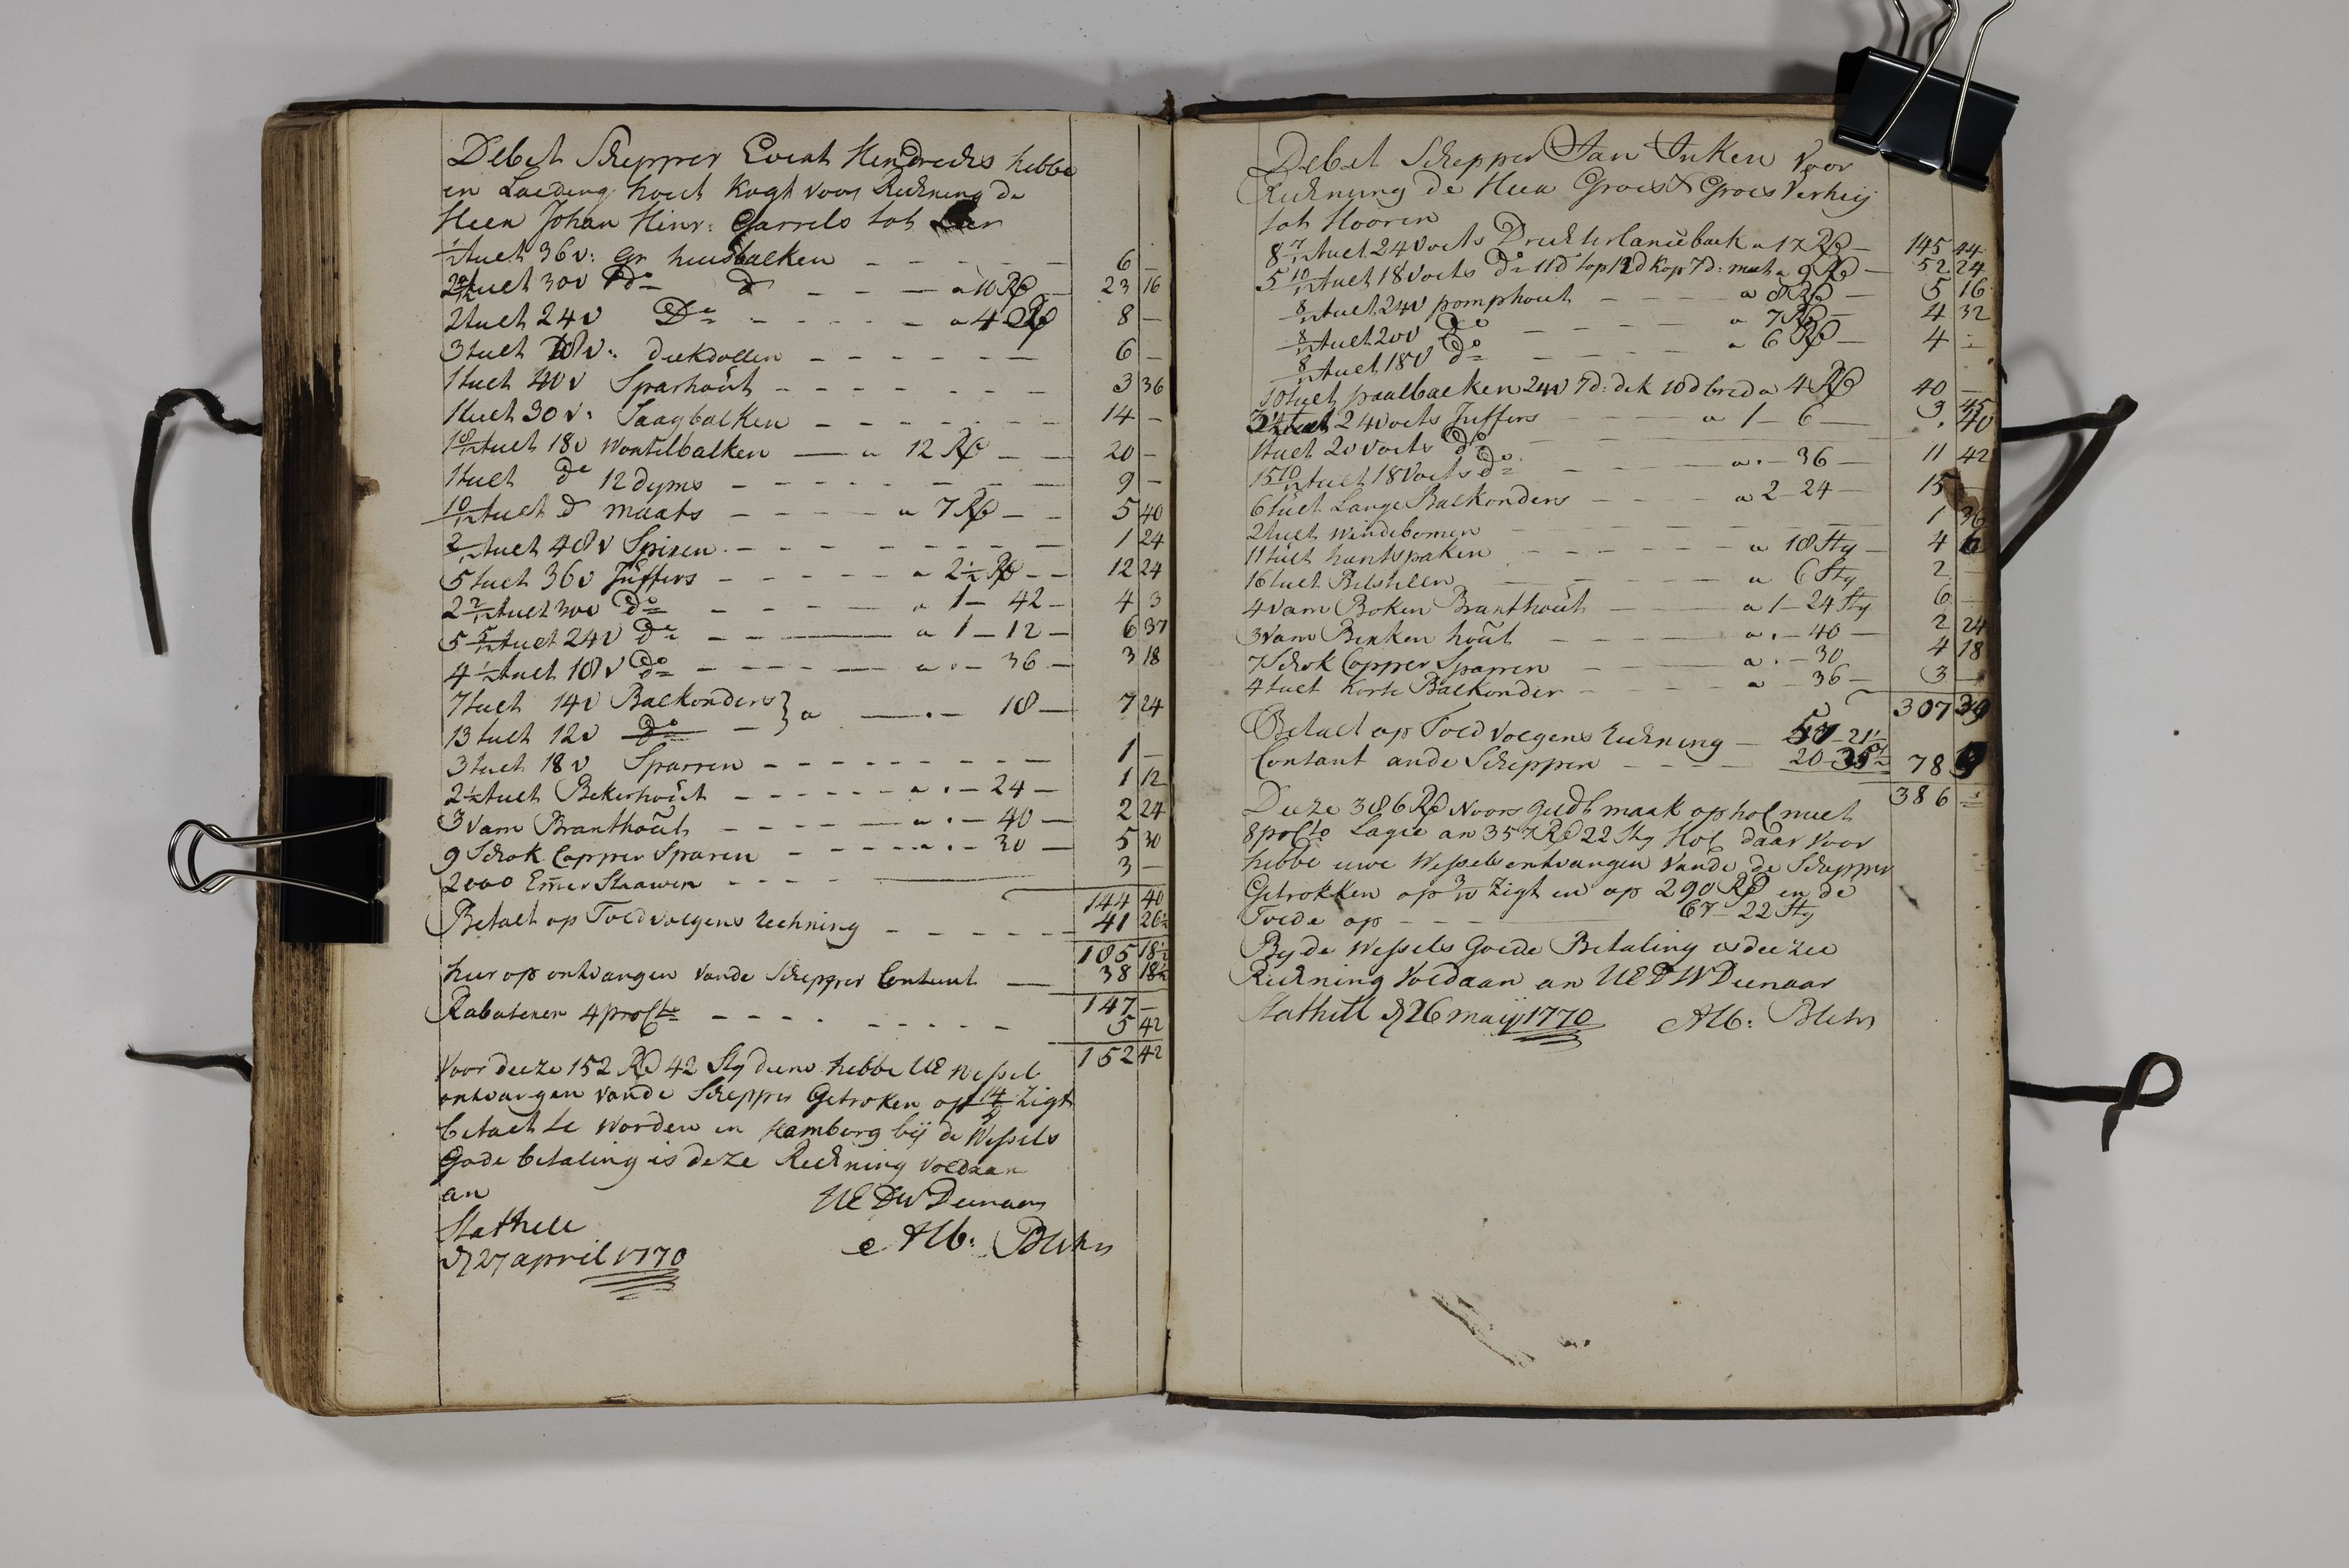 Debet Schepper Evert Hendrecks hebbe
en Laeding hoult kogt voor Reckning de
Heer Johan Hinr: Garrels tot Leer
1/2 tuelt 36 v: gr huusbalken 6 —
tuelt 30 v Do d a 10 Rd 23 16
2 tuelt 24 v Do a 4 Rd 8 —
3 tuelt 18 v: diekdollen 6 —
1 tuelt 40 v Sparhoüt 3 36
1 tuelt 30 v: Saagbalken 14 —
1 8/12 tuelt 18 v Wontelbalken a 12 Rd 20 —
1 tuelt do 12 dyms 9 —
10/12 tuelt d maats a 7 Rd 5 40
2/12 tuelt 48 v Spiren 1 24
5 tuelt 36 v Juffers a 2 1/2 Rd 12 24
2 2/12 tuelt 30 v Do a 1 — 42 4 3
5 5/12 tuelt 24 v Do a 1 — 12 6 37
4 1/2 tuelt 18 v Do a . — 36 3 18
7 tuelt 14 v Balkonders } a . — 18 7 24
13 tuelt 12 v Do
3 tuelt 18 v Sparren 1 —
2 1/2 tuelt Bekerhoüt a . — 24 1 12
3 vam Branthoüt a . — 40 2 24
9 Schok Copper Sparen a . — 30 5 30
2000 Emer Staawen 3 —
144 40
Betalt op Toed volgens rechning 41 26 1/2
185 18 1/2
hier op ontvangen vande Schepper Contant 38 18 1/2
147 —
Rabateren 4 proCto 5 42
152 42
Voor deeze 152 Rd 42 Stg deens hebbe UE Wessel
ontvangen vande Schepper Getroken op 14/d Zigt
betaelt te worden in Hamborg bij de Wessels
Gode betaling is deze Reckning voldaan
an UEDW Deenaar
Stathell
d 27 april 1770 Alb: Blehr
Debet Schepper Jan Inken Voor
Reckning de Heer Groes & Groes Verheij
tot Hooren
8 7/12 tuelt 24 voets Druckterlaniebalk a 17 Rd 145 44
5 10/12 tuelt 18 voets do 11 d top 12 d kop 7 d: mat a 9 Rd 52 24
8/12 tuelt 24 v pomphout a 8 Rd 5 16
8/12 tuelt 20 v Do a 7 Rd 4 32
8/12 tuelt 18 v do a 6 Rd 4 —
10 tuelt paalbalken 24 v 7 d: dik 10 d bred a 4 Rd 40 —
24 voets Juffers a 1 — 6 3 45
1 tuelt 20 voets do . 40
15 10/12 tuelt 18 Voets do a . — 36 11 42
6 tuelt Lange Balkonders a 2 — 24 15
2 tuelt windebomen 1 36
11 tuelt hantspaken a 18 Stg 4 6
16 tuelt Bilstellen a 6 Stg 2
4 vam Boken Branthoüt a 1 — 24 Stg 6 —
3 vam Berken hoüt a . — 40 2 24
7 Schok Copper Sparren a . — 30 4 18
4 tuelt Korte Balkonder a 36 3 —
307 39
Betalt op Toed Volgens Reckning 57 — 21 1/2
Contant ande Schepper 20 — 35 1/2 78 9
386 —
Deeze 386 Rd Noors Geldt maak op hol meet
8 proCto Lagie an 357 Rd 22 Stg Hol daar voor
hebbe uwe Wessels ontvangen vande de Schepper
Getrokken op 3/w Zigt en op 290 Rd en de
Toede op 67 — 22 Stg
By de Wessels Goede Betaling is deeze
Reckning Voldaan an UEDW Deenaar
Stathell d 26 maij 1770 Alb: Blehr